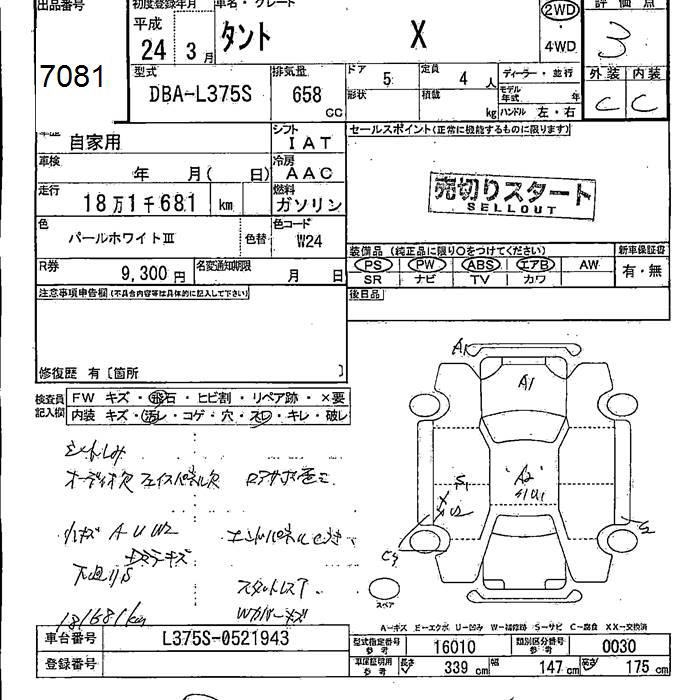 出品番号
7081
初度登録年月
平成
24 3 月
車名・グレード
タント X
2WD
・
4WD
評価点
3
外装 内装
C C
型式
DBA-L375S
排気量
658
CC
ドア 5
定員 4 人
形状
積載 kg
ディーラー・並行
モデル年式 年
ハンドル 左・右
自家用
シフト
IAT
車検
年 月( 日)
冷房
AAC
走行
18万1千681 km
燃料
ガソリン
色
パールホワイトⅢ
色替
色コード
W24
R券
9,300 円
名変通知期限
月 日
セールスポイント(正常に機能するものに限ります)
売切りスタート
SELLOUT
装備品 (純正品に限り○をつけてください)
PS PW ABS エアB AW
SR ナビ TV カワ
新車保証書
有・無
注意事項申告欄(不具合内容等は具体的に記入して下さい)
後日品
修復歴 有〔箇所 〕
検査員記入欄
FW キズ・飛石・ヒビ割・リペア跡・×要
内装 キズ・汚レ・コゲ・穴・スレ・キレ・破レ
オーディオ欠 フェイスパネル欠
小キズ A U W2
下廻りS
181681km
スタットレスT
Wカバーキズ
A1
A1
A2
S1U1
S1
S2
スペア
A-キズ E-エクボ U-凹み W-補修跡 S-サビ C-腐食 XX-交換済
車台番号 L375S-0521943
登録番号
型式指定番号 参考 16010
類別区分番号 参考 0030
車庫証明用 参考
長さ 339 cm 幅 147 cm 高さ 175 cm